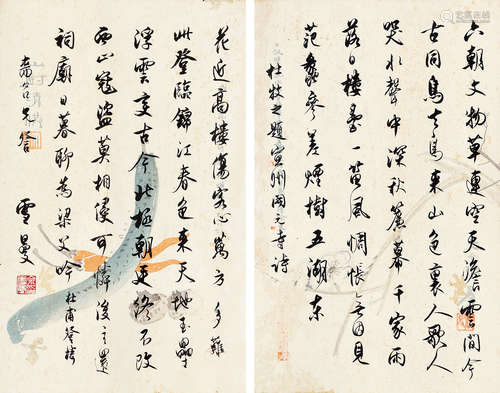 六朝文物草連空天澹雲間今
古同鳥去鳥來山色裏人歌人
哭水聲中深秋簾幕千家雨
落日樓臺一笛風惆悵無因見
范蠡參差煙樹五湖東
杜牧之題宣州開元寺詩
花近高樓傷客心萬方多難
此登臨錦江春色來天地玉壘
浮雲變古今北極朝廷終不改
西山寇盜莫相侵可憐後主還
祠廟日暮聊為梁父吟 杜甫登樓
雪曼